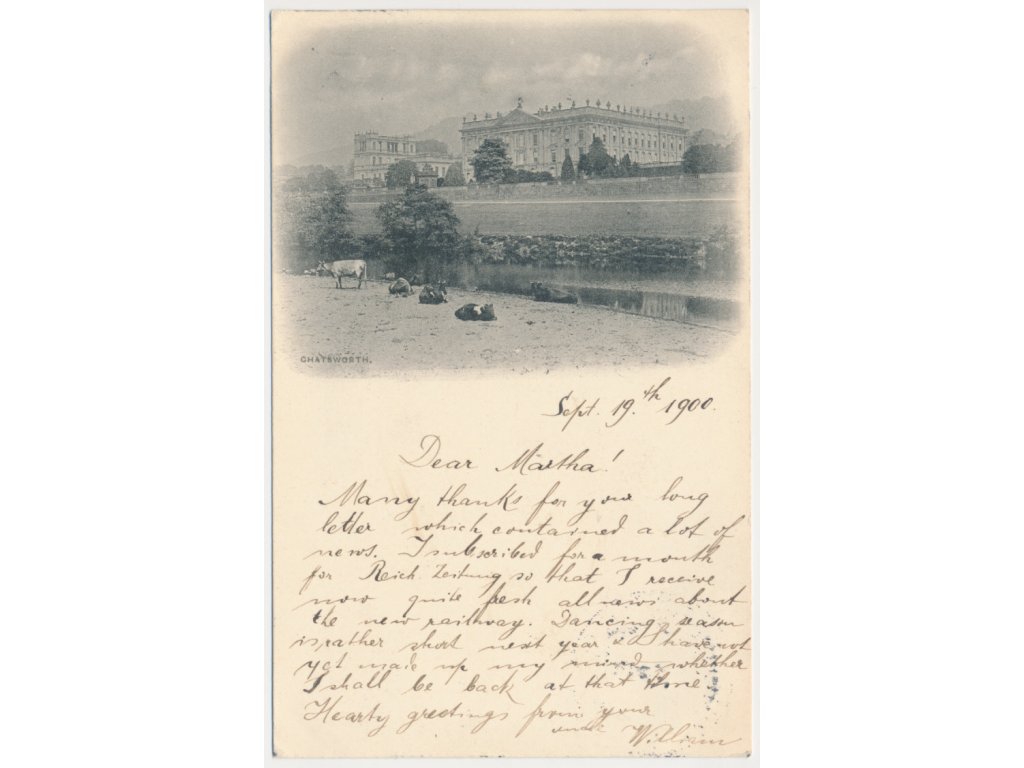 CHATSWORTH.
Sept. 19.th 1900.
Dear Martha!
Many thanks for your long
letter which contained a lot of
news. I subscribed for a month
for Reich. Zeitung so that I receive
now quite fresh all news about
the new railway. Dancing season
is rather short next year & I have not
yet made up my mind whether
I shall be back at that time
Hearty greetings from your
William